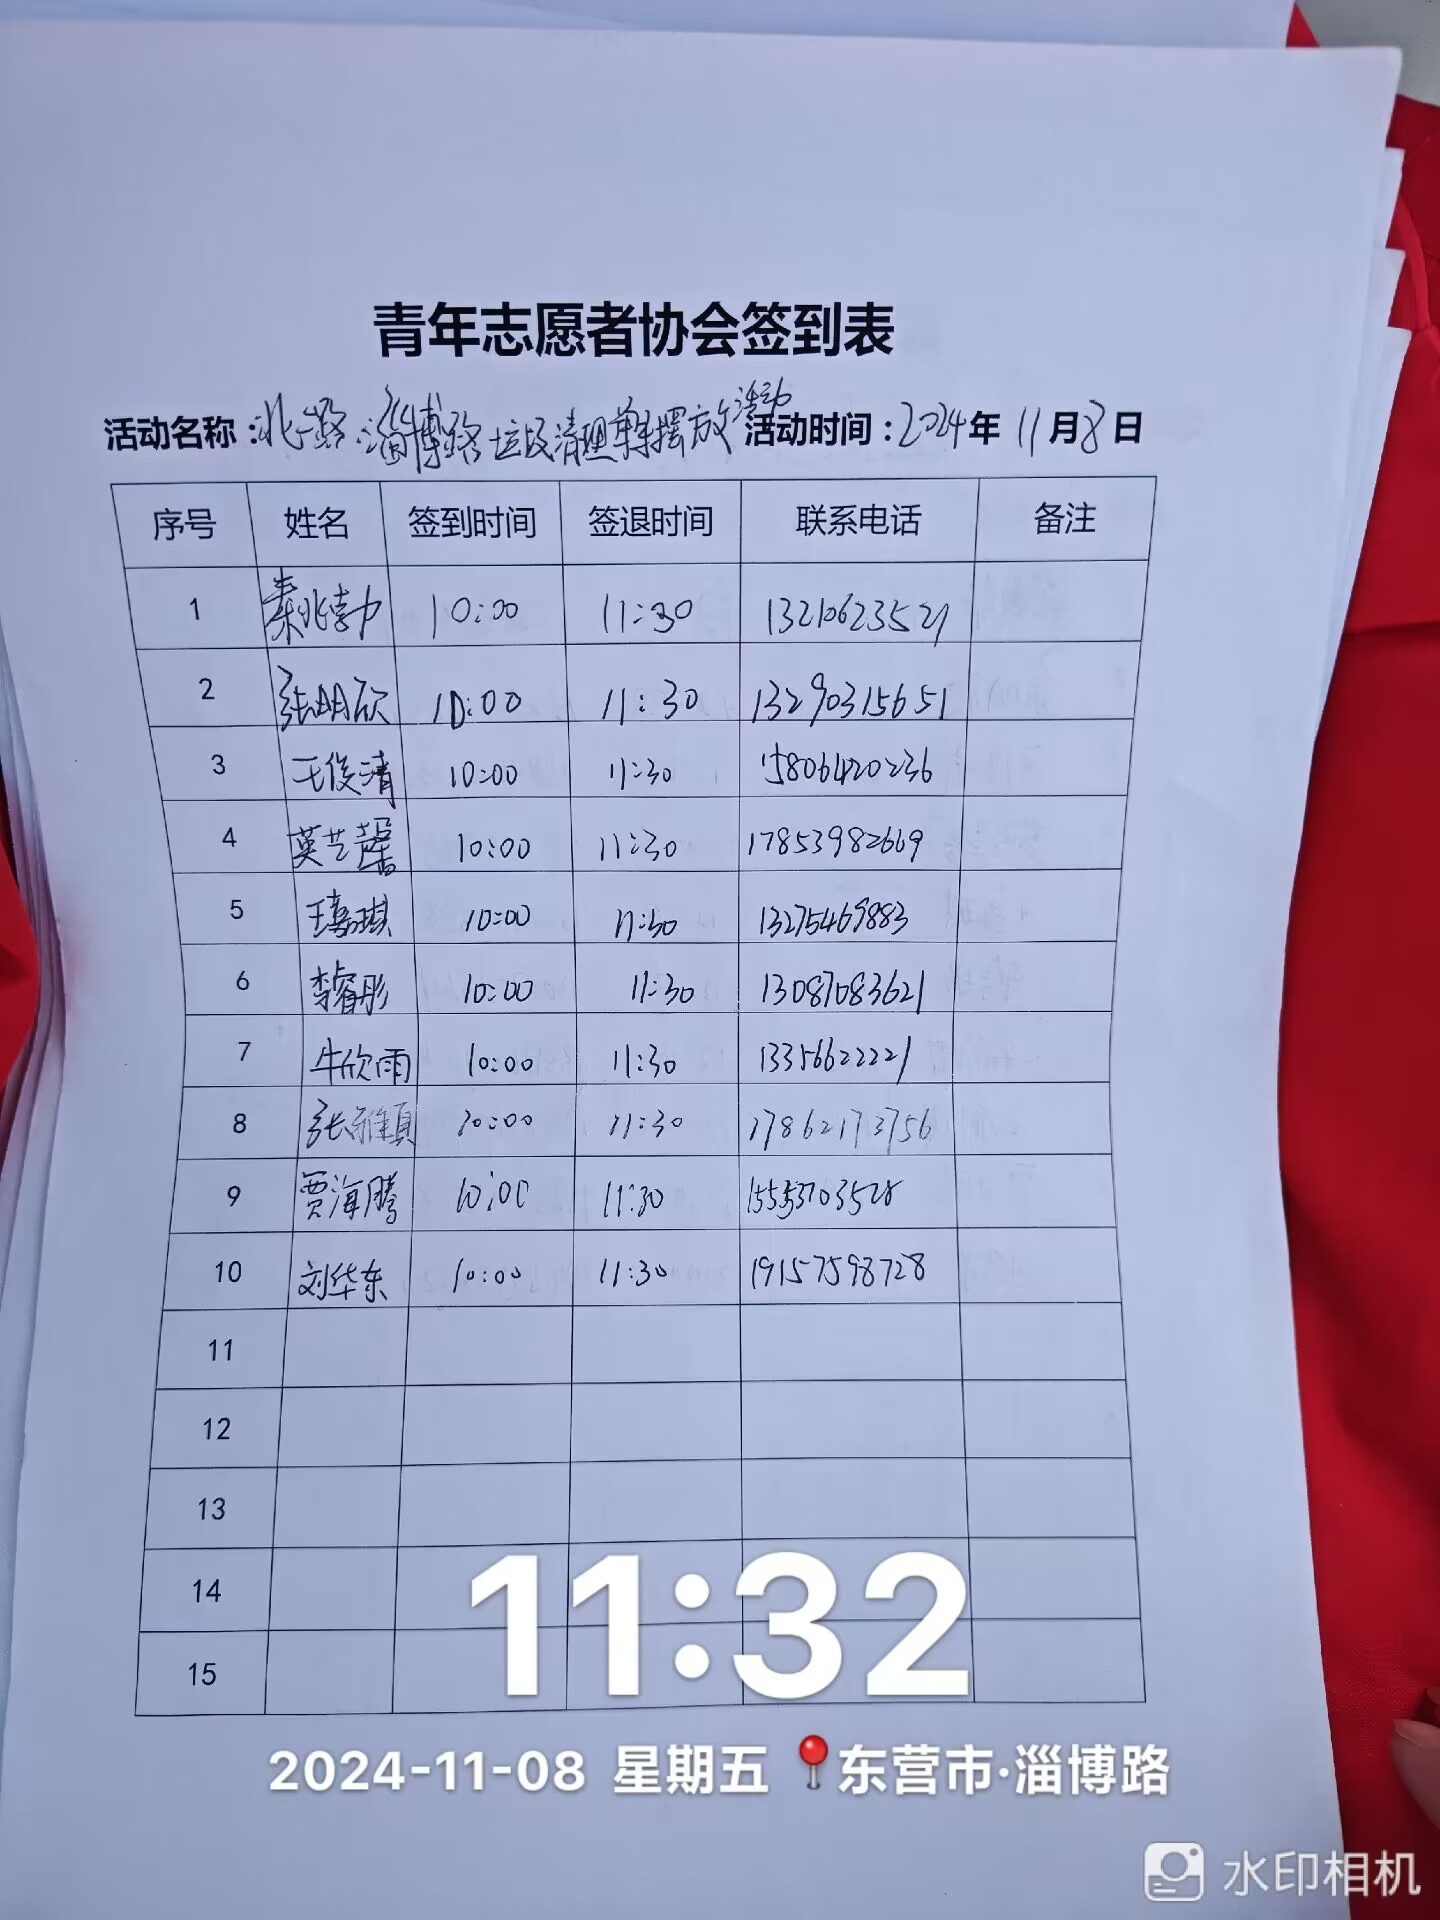 青年志愿者协会签到表
活动名称：北一路、淄博路垃圾清理单车摆放活动 活动时间：2024年11月8日
序号 姓名 签到时间 签退时间 联系电话 备注
1 秦兆勃 10:00 11:30 13210623521
2 张明欣 10:00 11:30 13290315651
3 王俊清 10:00 11:30 15806420236
4 英艺馨 10:00 11:30 17853982669
5 10:00 11:30 13275469883
6 李睿彤 10:00 11:30 13087083621
7 牛欣雨 10:00 11:30 13356622221
8 张雅真 10:00 11:30 17862173756
9 贾海腾 10:00 11:30 15553703528
10 刘华东 10:00 11:30 19157598728
11
12
13
14
15
11:32
2024-11-08 星期五 东营市·淄博路
水印相机